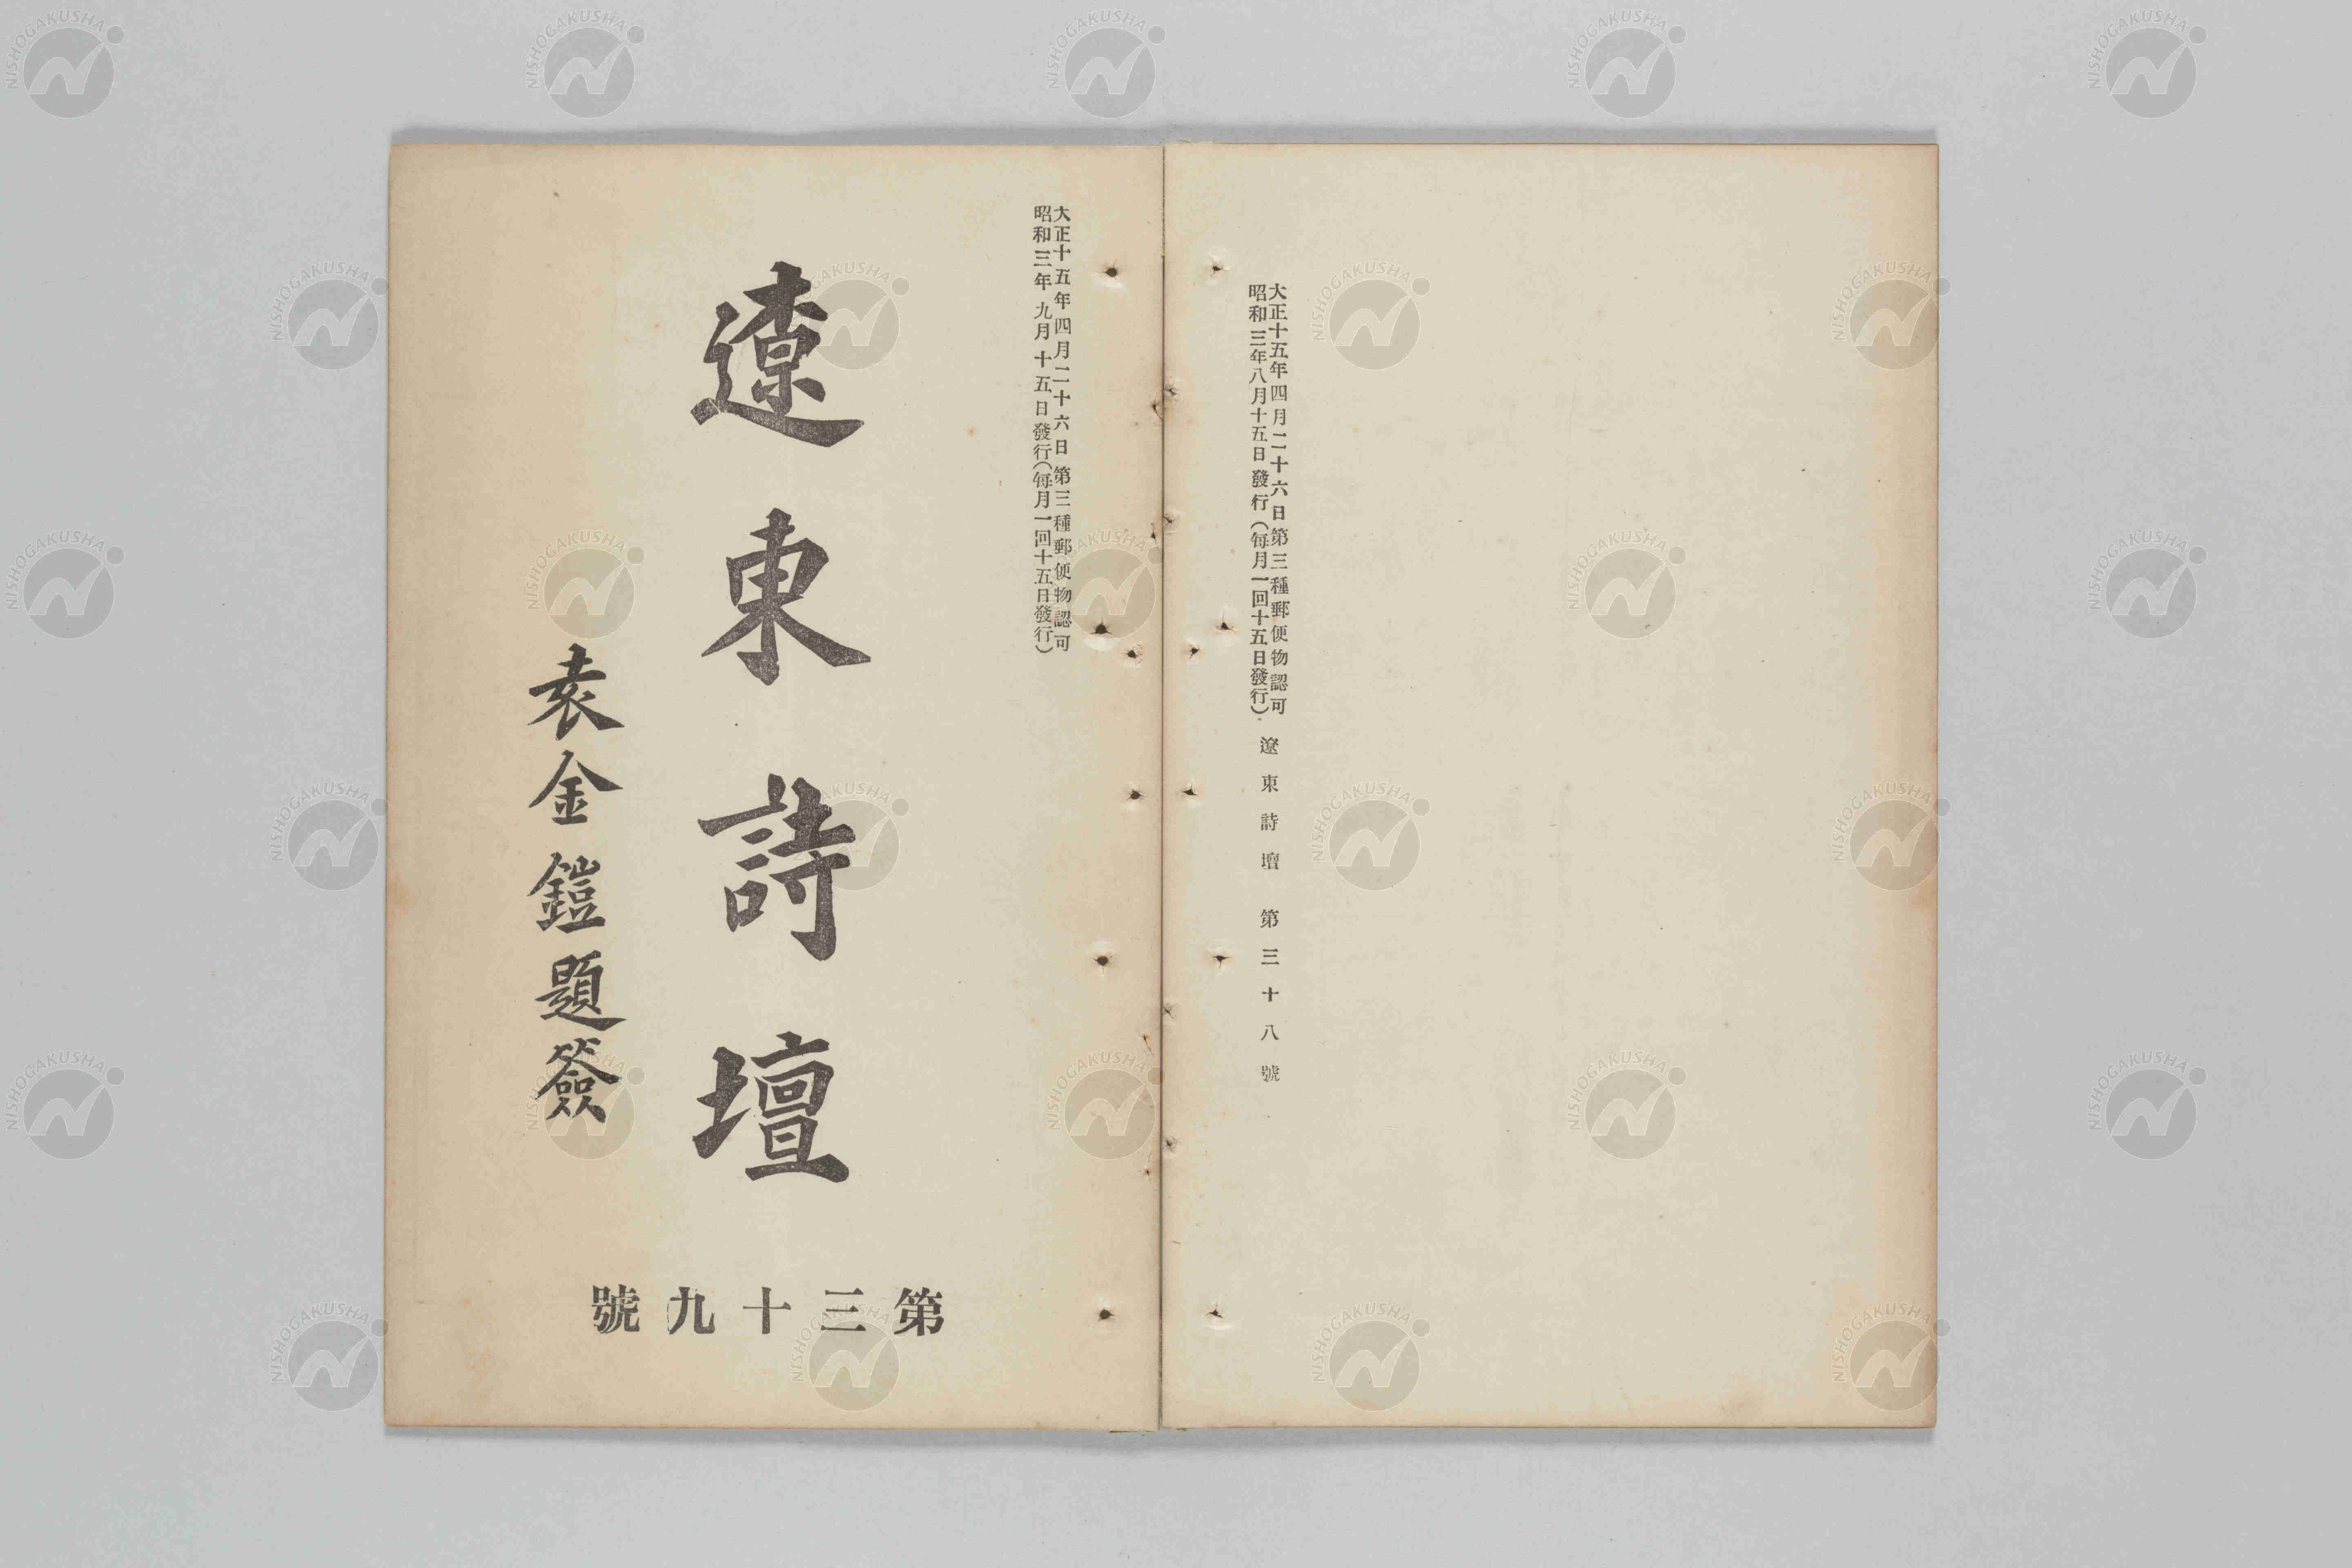 大正十五年四月二十六日第三種郵便物認可
昭和三年八月十五日發行(每月一回十五日發行)
遼東詩壇 第三十八號
大正十五年四月二十六日第三種郵便物認可
昭和三年九月十五日發行(每月一回十五日發行)
遼東詩壇
袁金鎧題簽
第三十九號
NISHOGAKUSHA